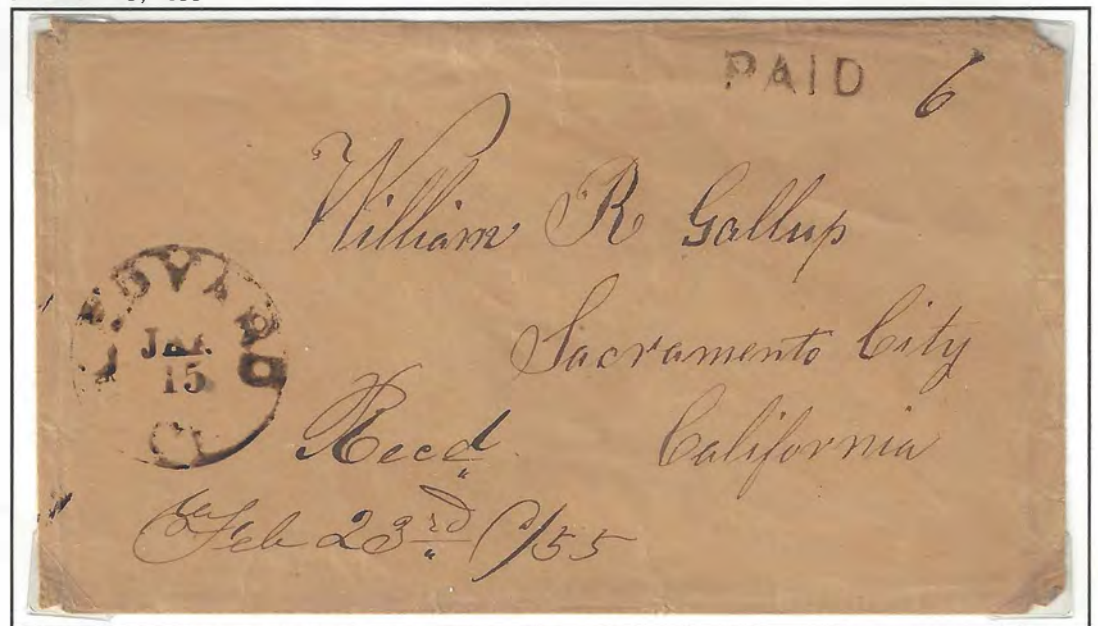 PAID 6
William R Gallup
Sacramento City
California
LEDYARD
JAN.
15
CT
Recd
Feb 23rd /55